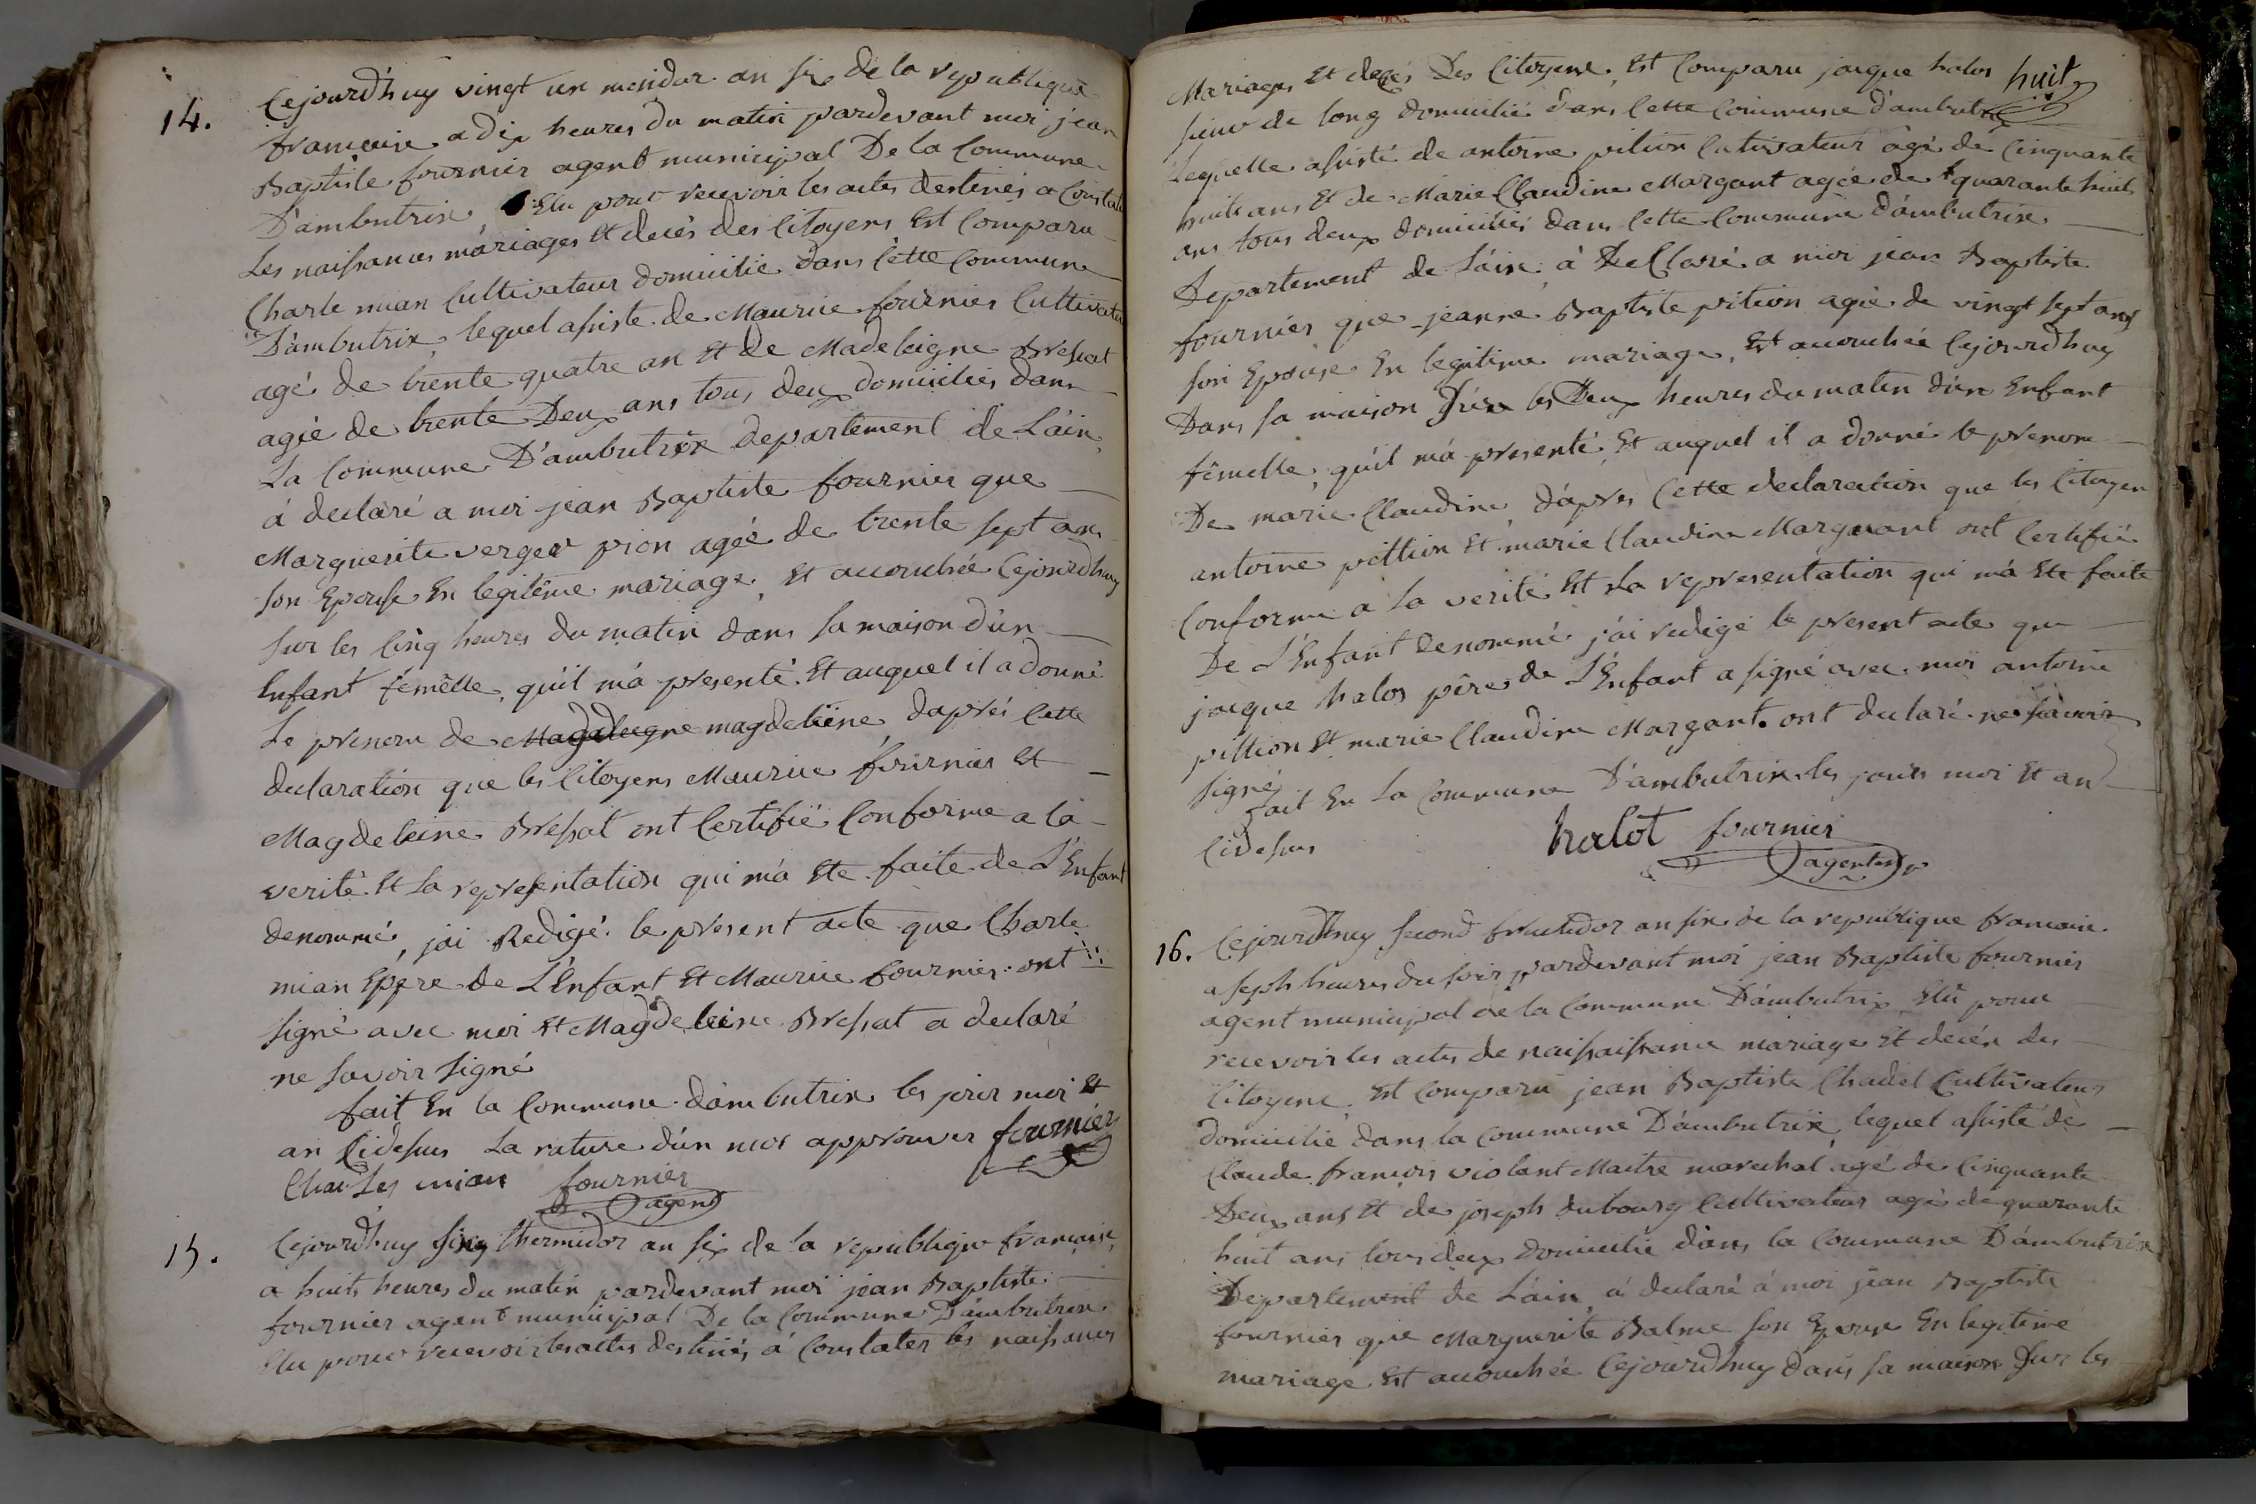 14.
Cejourdhuy vingt un mesidor an six de la republique
francaise a dix heures du matin pardevant moi jean
Baptiste fournier agent municipal De la Commune
D'ambutrix Elu pour recevoir les actes destinés a Constater
Les naissances mariages Et decès des Citoyens Est Comparu
Charle mian Cultivateur domicilié dans cette Commune
D'ambutrix lequel assiste de Maurice fournier Cultivateur
agé de trente quatre an Et de Madeleigne Bressat
agée de trente Deux ans tous deux domiciliés dans
La Commune D'ambutrix departement de L'ain
à declaré a moi jean Baptiste fournier que
Marguerite verger pion agée de trente sept ans
son Epouse En legitême mariage Et accouchée Cejourdhuy
sur les Cinq heures du matin dans sa maison d'un
Enfant fêmelle, qu'il m'a presenté Et auquel il a donné
Le prenom de Magdeleigne magdeleine d'aprés Cette
declaration que les Citoyens Maurice fournier Et
Magdeleine Bressat ont Certifié Conforme a la
verité Et La representation qui m'a Ete faite de L'Enfant
denommé, jai Redigé le present acte que Charle
mian Eppre de L'Enfant Et Maurice fournier ont
signé avec moi Et Magdeleine Bressat a declaré
ne savoir signé
fait En la Commune d'ambutrix les jour moi Et
an Cidessus La rature d'un mot approuver fournier
Charles mian fournier
agent
15.
Cejourdhuy Thermidor an six de la republique francaise
a huit heures du matin pardevant moi jean Baptiste
fournier agent municipal De la Commune D'ambutrix
Elu pour recevoir les actes destinés à Constater les naissances
huit
Mariages Et decès Des Citoyens Est Comparu jacque halos
de long domicilié dans Cette Commune d'ambutrix
Lequelle assisté de antoine pition Cutivateur agé de Cinquante
huit ans Et de Marie Claudine Margant agée de quarante huit
ans tous deux domiciliés dans Cette Commune d'ambutrix
Departement de L'ain à DeClaré a moi jean Baptiste
fournier que jeanne Baptiste pition agée de vingt sept ans
son Epouse En legitime mariage Est accouchée Cejourdhuy
Dans sa maison les Deux heures du matin d'un Enfant
fêmelle, qu'il m'a presenté Et auquel il a donné le prenom
De marie Claudine d'apres Cette declaration que les Citoyen
antoine pittion Et marie Claudine Marguant ont Certifié
Conforme a la verité Est La representation qui m'a Ete faite
De L'Enfant denommé j'ai redigé le present acte que
jacque halos père de L'Enfant a signé avec moi antoine
pittion Et marie Claudine Margant ont declaré ne savoir
signé
fait En La Commune D'ambutrix les jours moi Et an
Cidessus
halot fournier
agent
16.
Cejourdhuy second fructidor an six de la republique francaise
a sept heures du soir pardevant moi jean Baptiste fournier
agent municipal de la Commune D'ambutrix Elu pour
recevoir les actes de naissaissance mariage Et decés des
Citoyens Est Comparu jean Baptiste Chadel Cultivateur
domicilié dans la Commune D'ambutrix lequel assisté de
Claude francois violant Maitre marechal agé de Cinquante
Deux ans Et de joseph dubourg Cultivateur agé de quarante
huit ans tous deux domicilié dans la Commune D'ambutrix
Departement de L'ain à declaré à moi jean Baptiste
fournier que Marguerite Balme son Epouse En legitime
mariage Est accouchée Cejourdhuy dans sa maison sur les